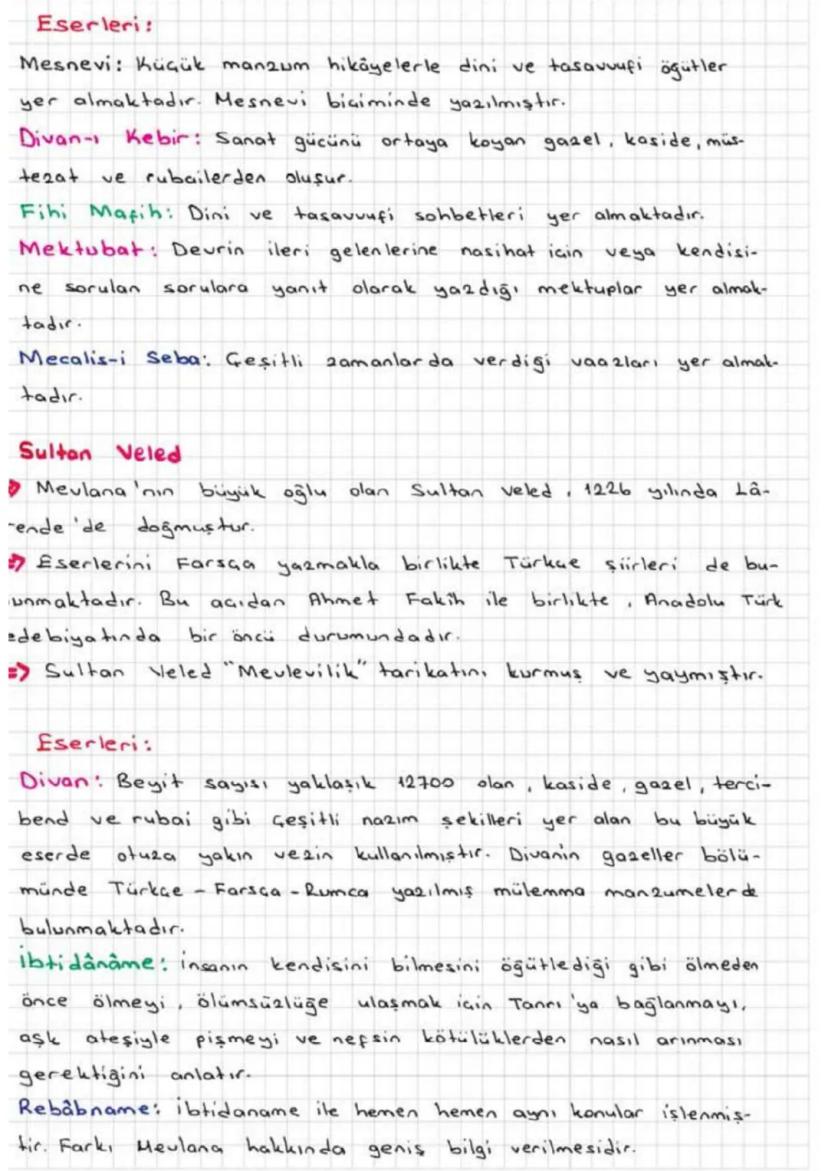 Eserleri:
Mesnevi: Küçük manzum hikâyelerle dini ve tasavvufi öğütler
yer almaktadır. Mesnevi biçiminde yazılmıştır.
Divan-ı Kebir: Sanat gücünü ortaya koyan gazel, kaside, müs-
tezat ve rubailerden oluşur.
Fihi Mafih: Dini ve tasavvufi sohbetleri yer almaktadır.
Mektubat: Devrin ileri gelenlerine nasihat için veya kendisi-
ne sorulan sorulara yanıt olarak yazdığı mektuplar yer almak-
tadır.
Mecalis-i Seba: Çeşitli zamanlarda verdiği vaazları yer almak-
tadır.
Sultan Veled
Mevlana'nın büyük oğlu olan Sultan Veled, 1226 yılında Lâ-
rende'de doğmuştur.
=> Eserlerini Farsça yazmakla birlikte Türkçe şiirleri de bu-
unmaktadır. Bu açıdan Ahmet Fakih ile birlikte, Anadolu Türk
edebiyatında bir öncü durumundadır.
=> Sultan Veled "Mevlevilik" tarikatını kurmuş ve yaymıştır.
Eserleri:
Divan: Beyit sayısı yaklaşık 12700 olan, kaside, gazel, terci-
bend ve rubai gibi çeşitli nazım şekilleri yer alan bu büyük
eserde otuza yakın vezin kullanılmıştır. Divanin gazeller bölü-
münde Türkçe - Farsça - Rumca yazılmış mülemma manzumelerde
bulunmaktadır.
İbtidânâme: İnsanın kendisini bilmesini öğütlediği gibi ölmeden
önce ölmeyi, ölümsüzlüğe ulaşmak için Tanrı'ya bağlanmayı,
aşk ateşiyle pişmeyi ve nefsin kötülüklerden nasıl arınması
gerektiğini anlatır.
Rebâbname: İbtidaname ile hemen hemen aynı konular işlenmiş-
tir. Farkı Mevlana hakkında geniş bilgi verilmesidir.